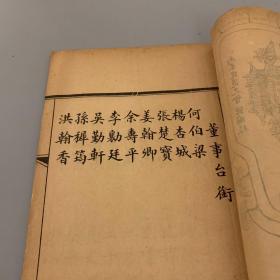 董事台衔
何伯梁
楊杏城
張楚寶
姜翰卿
余壽平
李勳廷
吳勤軒
孫樨筠
洪翰香